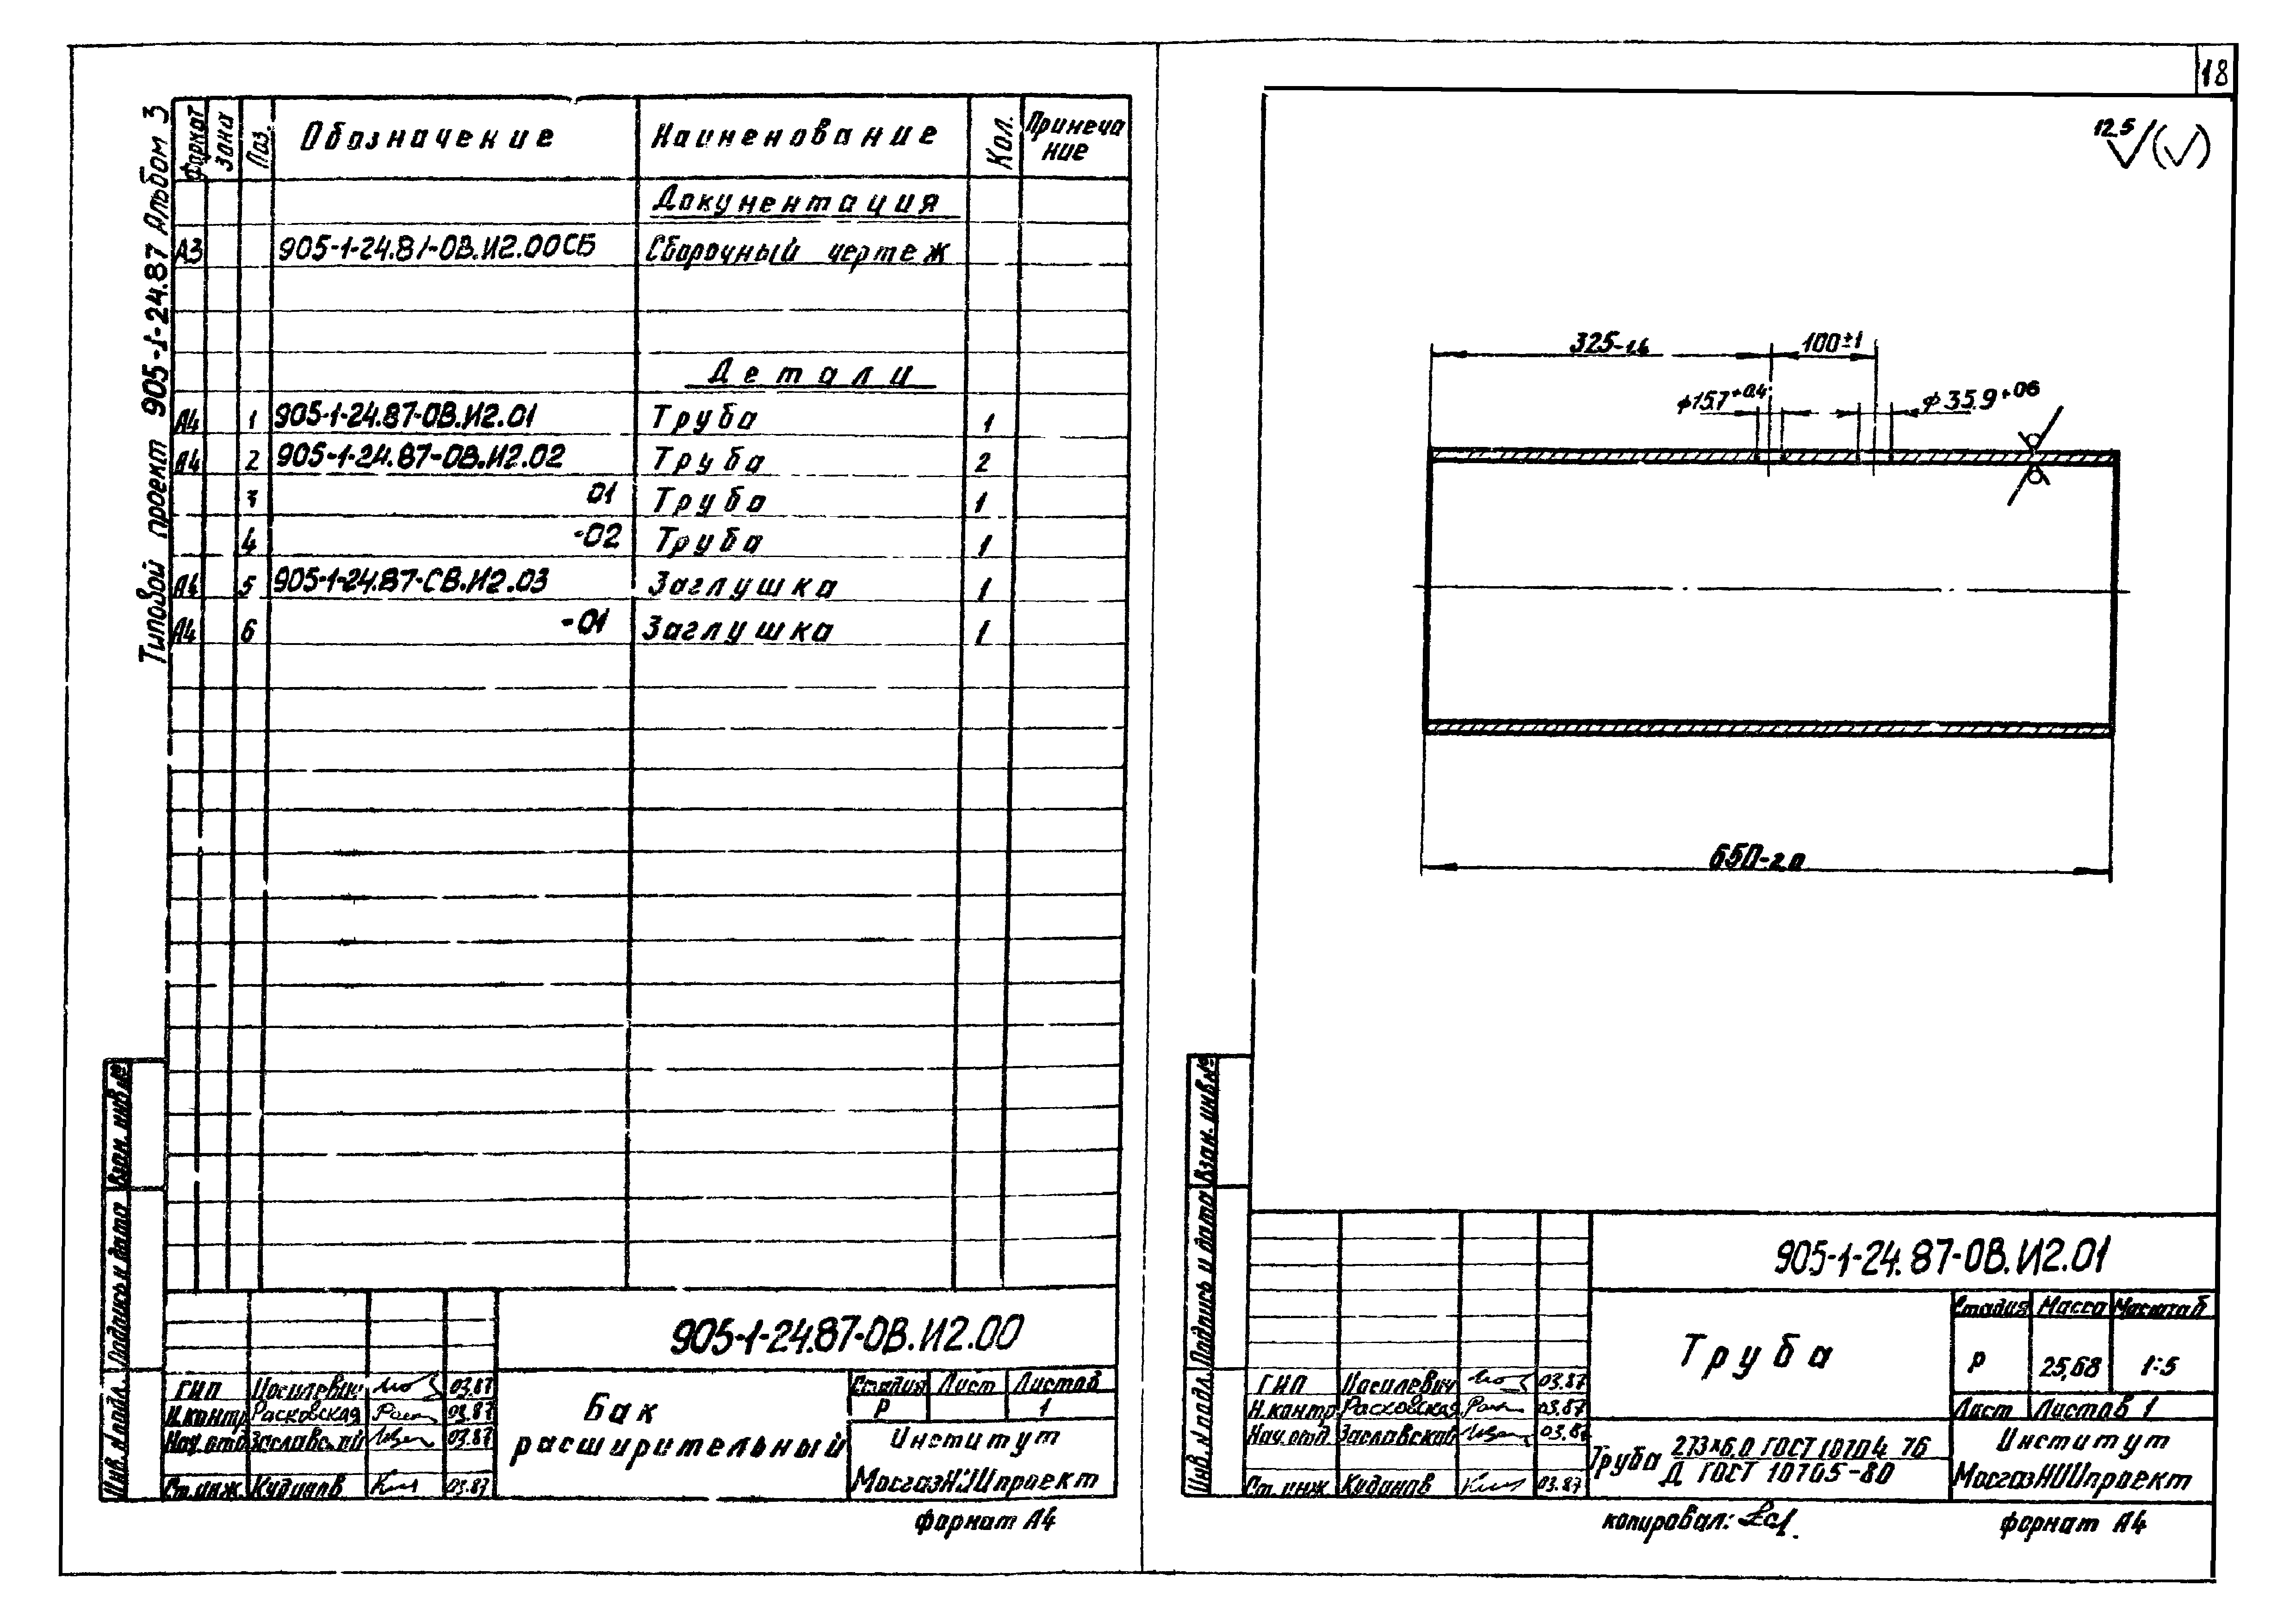 18
Типовой проект 905-1-24.87 Альбом 3
Формат Зона Поз. Обозначение Наименование Кол. Примеча
ние
Документация
А3 905-1-24.87-ОВ.И2.00СБ Сборочный чертеж
Детали
А4 1 905-1-24.87-ОВ.И2.01 Труба 1
А4 2 905-1-24.87-ОВ.И2.02 Труба 2
3 01 Труба 1
4 -02 Труба 1
А4 5 905-1-24.87-СВ.И2.03 Заглушка 1
А4 6 -01 Заглушка 1
Взам. инв. №
Подпись и дата
Инв. N подл.
905-1-24.87-ОВ.И2.00
ГИП 03.87
Н.контр Расковская 03.87
Нач.отд. 03.87
Ст.инж. Кудинов 03.87
Бак
расширительный
Стадия Лист Листов
Р 1
Институт
МосгазНИИпроект
формат А4
12.5
325-1.4
100±1
ф15.7+0.4
ф35.9+06
650-2.0
Взам. инв. №
Подпись и дата
Инв. N подл.
905-1-24.87-ОВ.И2.01
ГИП 03.87
Н.контр Расковская 03.87
Нач.отд. 03.87
Ст.инж Кудинов 03.87
Труба
Стадия Масса Масштаб
Р 25,68 1:5
Лист Листов 1
Труба 273х6.0 ГОСТ 10704 76
Д ГОСТ 10705-80
Институт
МосгазНИИпроект
копировал:
формат А4